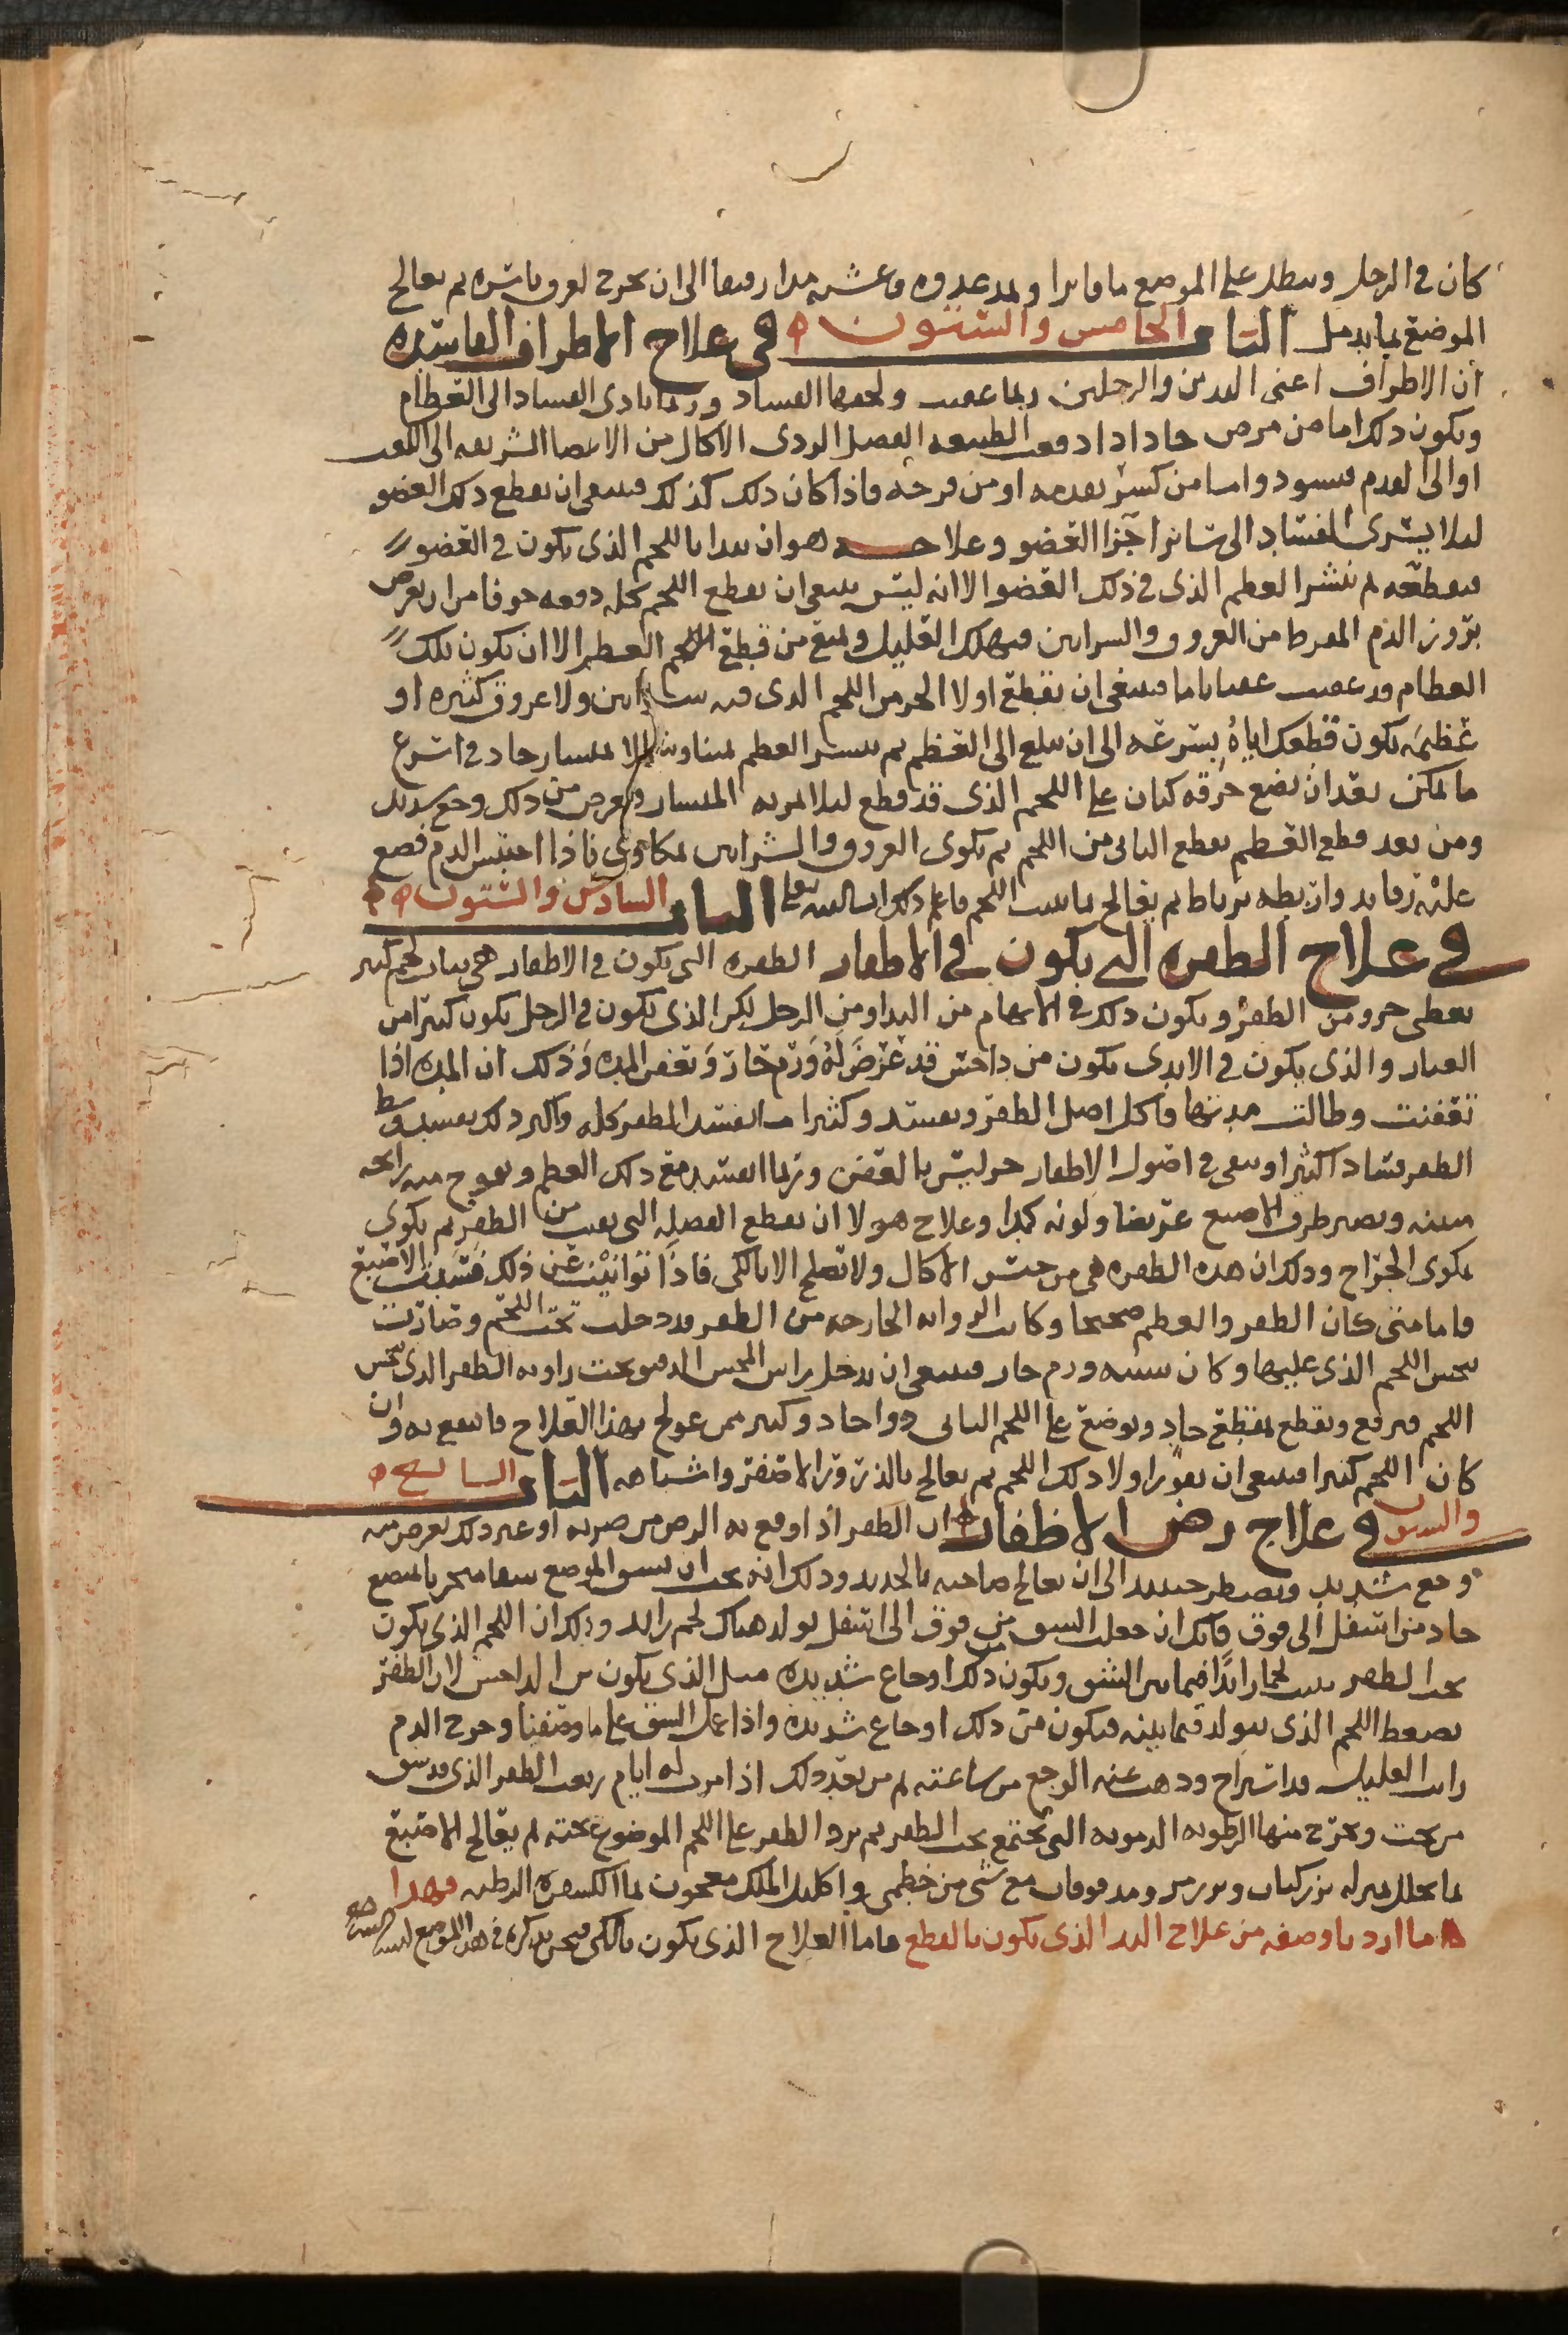 كان في الرجل وينطل على الموضع ما فاترا ويمد غدوة وعشية مدا رفيقا الى ان يخرج العرق باسره ثم يعالج
الموضع بما يدمل الباب الخامس والستون في علاج الاطراف الفاسده
ان الاطراف اعني اليدين والرجلين ربما عفنت ولحقها الفساد وربما تادى الفساد الى العظام
ويكون ذلك اما من مرض حاد اذا دفعت الطبيعه الفضل الردي الاكال من الاعضا الشريفه الى الكف
او الى القدم فيسود واما من كسر تقدمه او من قرحه فاذا كان ذلك كذلك فينبغي ان يقطع ذلك العضو
ليلا يسري الفساد الى سائر اجزا العضو وعلاجه هو ان يبدا باللحم الذي يكون في العضو
فيقطعه ثم ينشر العظم الذي في ذلك العضو الا انه ليس ينبغي ان يقطع اللحم كله دفعه خوفا من ان يعرض
بروز الدم المفرط من العروق والشرايين فيهلك العليل ويمنع من قطع اللحم العظم الا ان يكون تلك
العظام قد عفنت عفنا تاما فينبغي ان يقطع اولا الجز من اللحم الذي فيه شرايين ولا عروق كثيره او
عظيمه يكون قطعك اياه بسرعه الى ان يبلغ الى العظم ثم ينشر العظم بمنشار حاد في اسرع
ما يمكن بعد ان يضع خرقه كتان على اللحم الذي قد قطع ليلا يمر به المنشار فيعرض من ذلك وجع شديد
ومن بعد قطع العظم يقطع الباقي من اللحم ثم يكوى العروق والشرايين بمكاوي فاذا احتبس الدم فضع
عليه رفايد واربطه برباط ثم يعالج بما ينبت اللحم فاعلم ذلك ان شا الله تعالى الباب السادس والستون
في علاج الظفره التي يكون في الاظفار الظفره التي يكون في الاظفار هي نبات لحم كثير
يغطي جزو من الظفر ويكون ذلك في الابهام من اليد او من الرجل لكن الذي يكون في الرجل يكون كثيرا من
العثار والذي يكون في الايدي يكون من داحس قد عرض له ورم حار وتعفن المده وذلك ان المده اذا
تعفنت وطالت مدتها فاكل اصل الظفر ويفسد وكثيرا ما افسد الظفر كله واكثر ذلك يفسد وسط
الظفر فسادا كثيرا ويبقى في اصول الاظفار جز ليس بالعفن وربما افسد مع ذلك العظم ويفوح منه رايحه
منتنه ويصير طرف الاصبع عريضا ولونه كمدا وعلاج هولا ان يقطع الفضله التي بقيت من الظفر ثم يكوى
بمكوى الجراح وذلك ان هذه الظفره هي من جنس الاكال ولا تصلح الا بالكي فاذا توانيت عن ذلك فسدت الاصبع
فاما متى كان الظفر والعظم صحيحا وكانت الزوايه الخارجه من الظفر قد دخلت تحت اللحم وصارت
تنخس اللحم الذي عليها وكان سببه ورم حار فينبغي ان يدخل راس المجس الدقيق تحت زاويه الظفر الذي تنخس
اللحم فيرفع ويقطع بمقطع حاد ويوضع على اللحم الباقي دوا حاد وكثير ممن عولج بهذا العلاج فانتفع به وان
كان اللحم كثيرا فينبغي ان يقور اولا ذلك اللحم ثم يعالج بالذرور الاصفر واشباهه الباب السابع
والستون في علاج رض الاظفار ان الظفر اذا وقع به الرض من ضربه او غير ذلك يعرض منه
وجع شديد ويضطر حينيذ الى ان يعالج صاحبه بالحديد وذلك انه يجب ان يشق الموضع شقا منحرفا بمبضع
حاد من اسفل الى فوق فانك ان جعلت الشق من فوق الى اسفل تولد هناك لحم زايد وذلك ان اللحم الذي يكون
تحت الظفر ينبت لحما زايدا فيما بين الشق ويكون من ذلك اوجاع شديده مثل الذي يكون من الداحس لان الظفر
يضغط اللحم الذي يتولد فيما بينه فيكون من ذلك اوجاع شديده واذا عمل الشق على ما وصفنا وخرج الدم
رايت العليل قد استراح وذهب عنه الوجع من ساعته ثم من بعد ذلك اذا مرت له ايام رفعت الظفر الذي قد شق
من تحت وتخرج منها الرطوبه الدمويه التي تجتمع تحت الظفر ثم يرد الظفر على اللحم الموضوع تحته ثم يعالج الاصبع
بما يحلل بمنزله بزر كتان وبزر مر ومدقوقان مع شي من خطمي واكليل الملك معجون بما الكسفره الرطبه فهذا
ما اردنا وصفه من علاج اليد الذي يكون بالقطع فاما العلاج الذي يكون بالكي فنحن نذكره في هذا الموضع